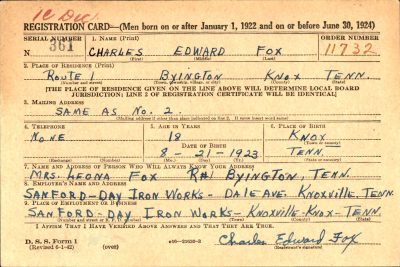 REGISTRATION CARD—(Men born on or after January 1, 1922 and on or before June 30, 1924)
SERIAL NUMBER 1. NAME (Print) ORDER NUMBER
361 CHARLES EDWARD FOX 11732
(First) (Middle) (Last)
2. PLACE OF RESIDENCE (Print)
ROUTE 1 BYINGTON KNOX TENN.
(Number and street) (Town, township, village, or city) (County) (State)
[THE PLACE OF RESIDENCE GIVEN ON THE LINE ABOVE WILL DETERMINE LOCAL BOARD
JURISDICTION; LINE 2 OF REGISTRATION CERTIFICATE WILL BE IDENTICAL]
3. MAILING ADDRESS
SAME AS NO. 2.
[Mailing address if other than place indicated on line 2. If same insert word same]
4. TELEPHONE 5. AGE IN YEARS 6. PLACE OF BIRTH
NONE 18 KNOX
DATE OF BIRTH (Town or county)
8-21-1923 TENN
(Mo.) (Day) (Yr.) (State or country)
7. NAME AND ADDRESS OF PERSON WHO WILL ALWAYS KNOW YOUR ADDRESS
MRS. LEONA FOX R#1 BYINGTON, TENN.
8. EMPLOYER'S NAME AND ADDRESS
SANFORD-DAY IRON WORKS- DALE AVE. KNOXVILLE, TENN.
9. PLACE OF EMPLOYMENT OR BUSINESS
SANFORD-DAY IRON WORKS- KNOXVILLE-KNOX-TENN.
(Number and street or R. F. D. number) (Town) (County) (State)
I AFFIRM THAT I HAVE VERIFIED ABOVE ANSWERS AND THAT THEY ARE TRUE.
D. S. S. Form 1
(Revised 6-1-42) (over) Charles Edward Fox